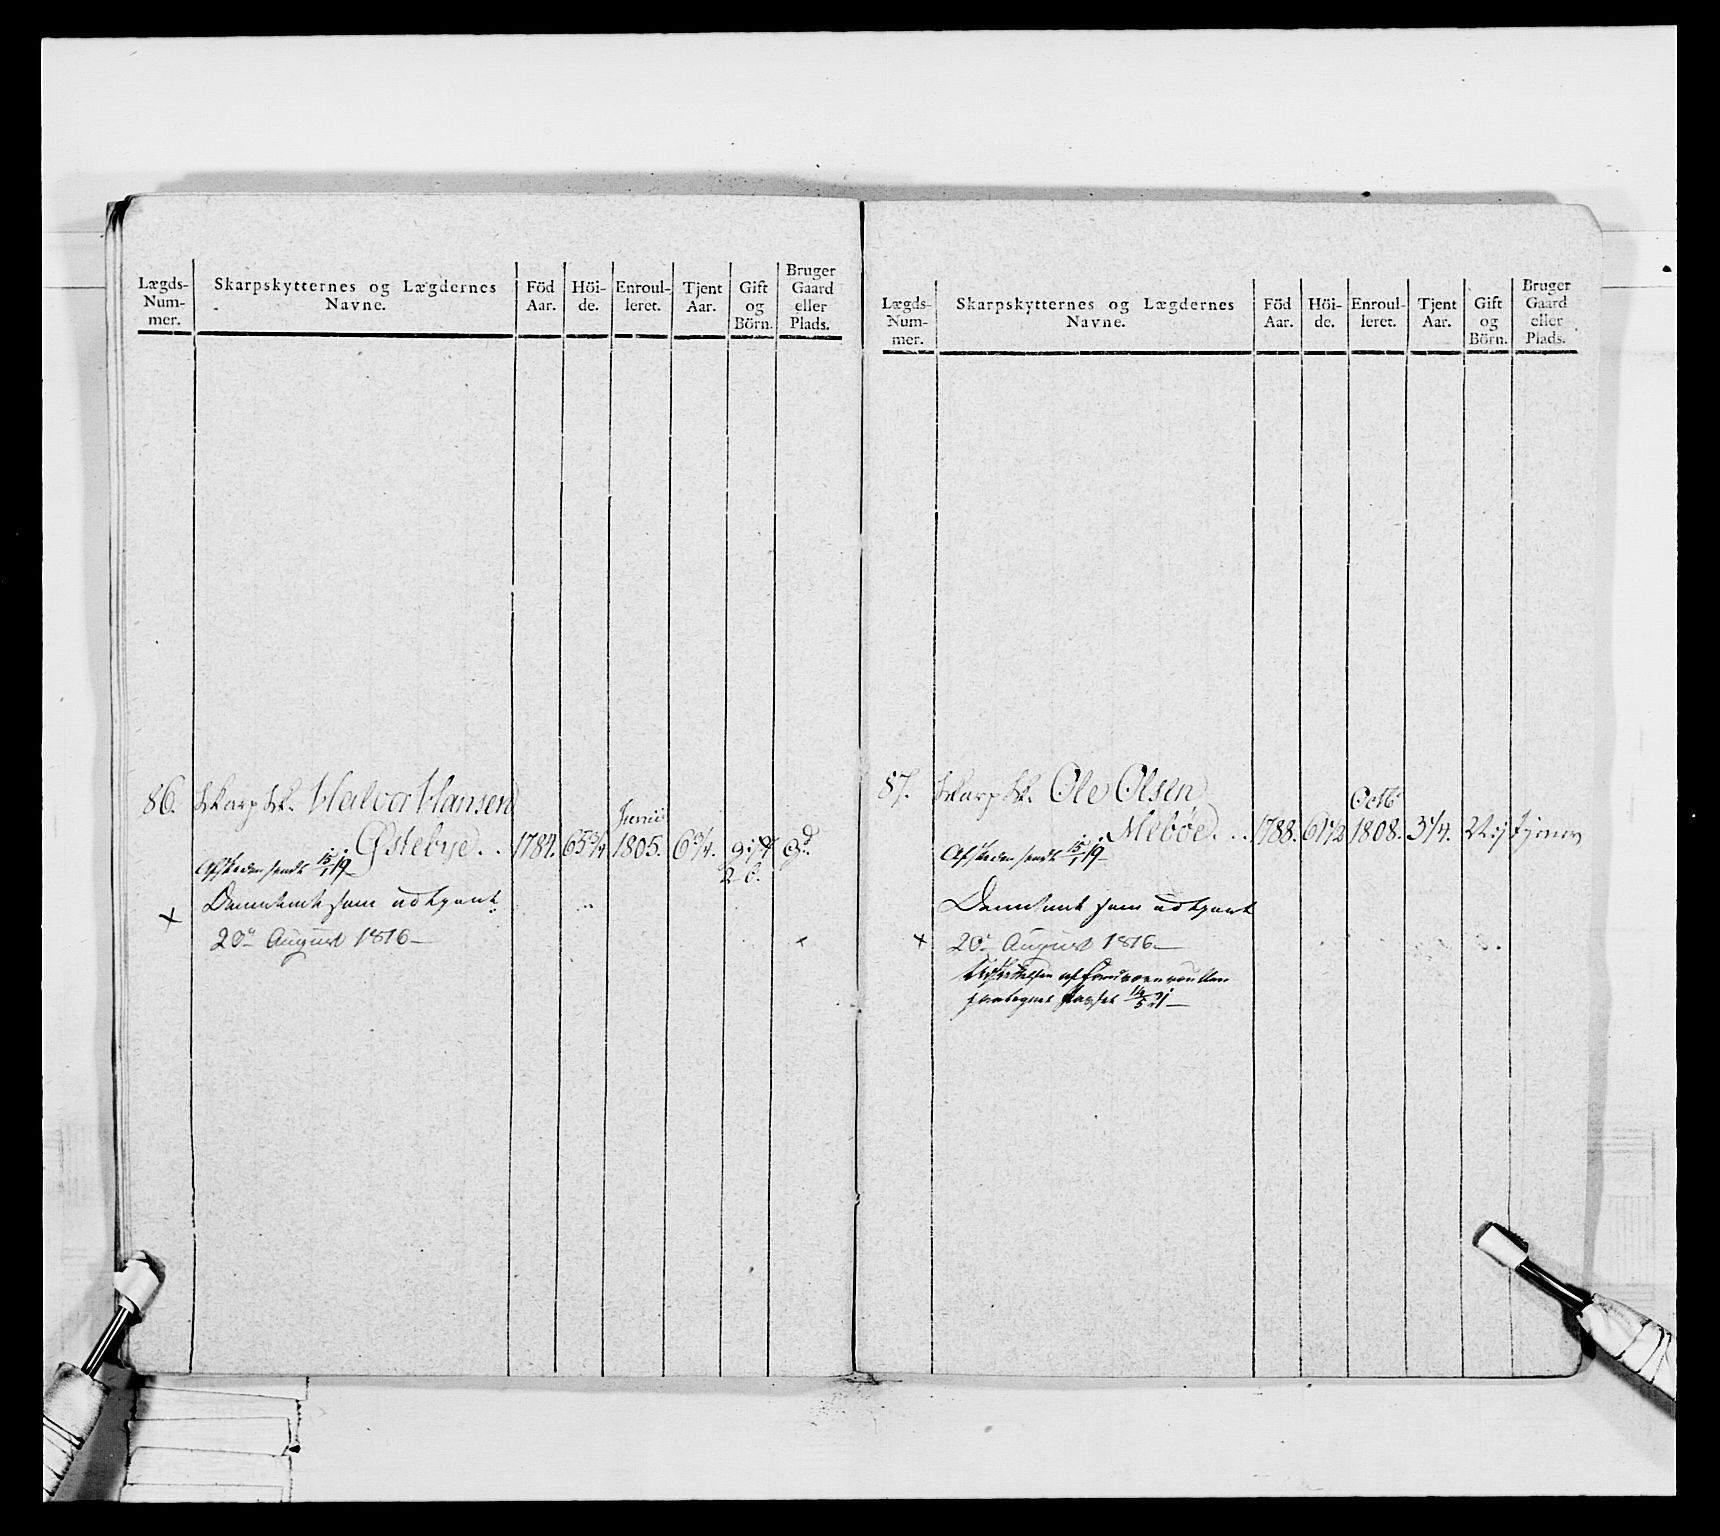 Lægds-
Num-
mer.
Skarpskytternes og Lægdernes
Navne.
Föd
Aar.
Höi-
de.
Enroul-
leret.
Tjent
Aar.
Gift
og
Börn.
Bruger
Gaard
eller
Plads.
86. Skarpsk. Halvor Hansen
Østebye.. 1784. 65 3/4 Junii 1805. 6 3/4. gift 2 b. Gd.
Afskeden sendt 15/1 19
Demitent som udtjent
× 20de August 1816 —
Lægds-
Num-
mer.
Skarpskytternes og Lægdernes
Navne.
Föd
Aar.
Höi-
de.
Enroul-
leret.
Tjent
Aar.
Gift
og
Börn.
Bruger
Gaard
eller
Plads.
87. Skarpsk. Ole Olsen
Meböe... 1788. 61 1/2 Octb 1808. 3 1/4. Tjener
Afskeden sendt 15/1 19
Demitent som udtjent
× 20de August 1816 —
14/5 21 —